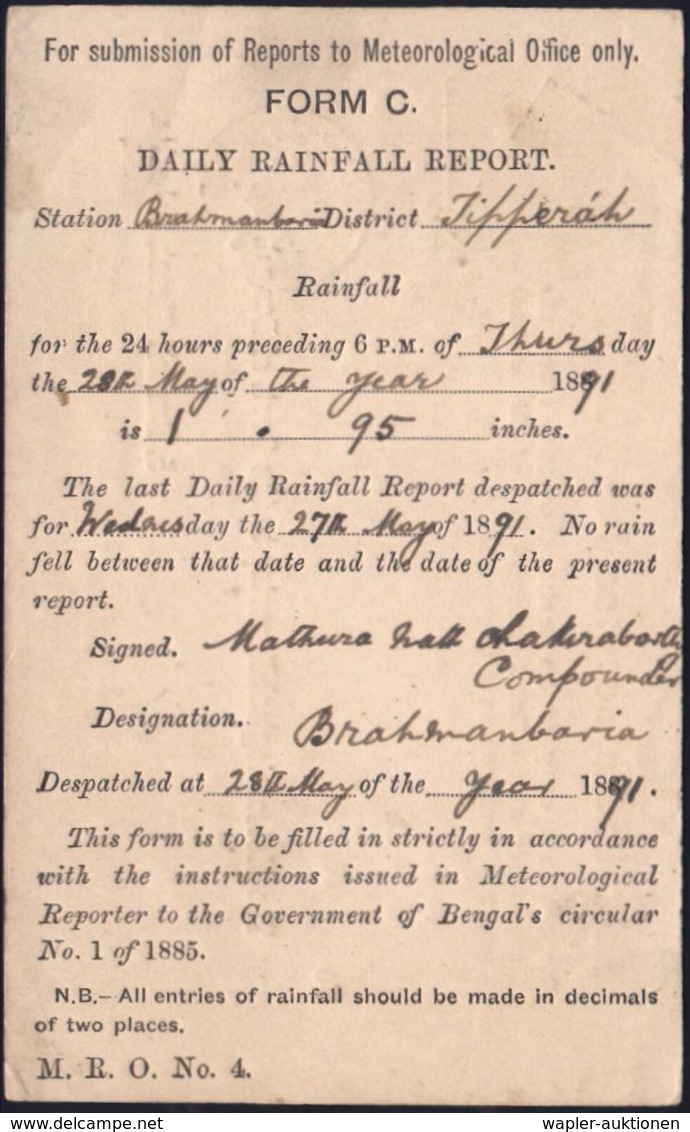 For submission of Reports to Meteorological Office only.
FORM C.
DAILY RAINFALL REPORT.
Station Brahmanbaria District Tipperáh
Rainfall
for the 24 hours preceding 6 P.M. of Thurs day
the 28th May of the year 1891
is 1 . 95 inches.
The last Daily Rainfall Report despatched was
for Wednesday the 27th May of 1891. No rain
fell between that date and the date of the present
report.
Signed. Mathura Nath Chakraborti
Compounder
Designation. Brahmanbaria
Despatched at 28th May of the Year 1891.
This form is to be filled in strictly in accordance
with the instructions issued in Meteorological
Reporter to the Government of Bengal's circular
No. 1 of 1885.
N.B.—All entries of rainfall should be made in decimals
of two places.
M. R. O. No. 4.
www.delcampe.net wapler-auktionen